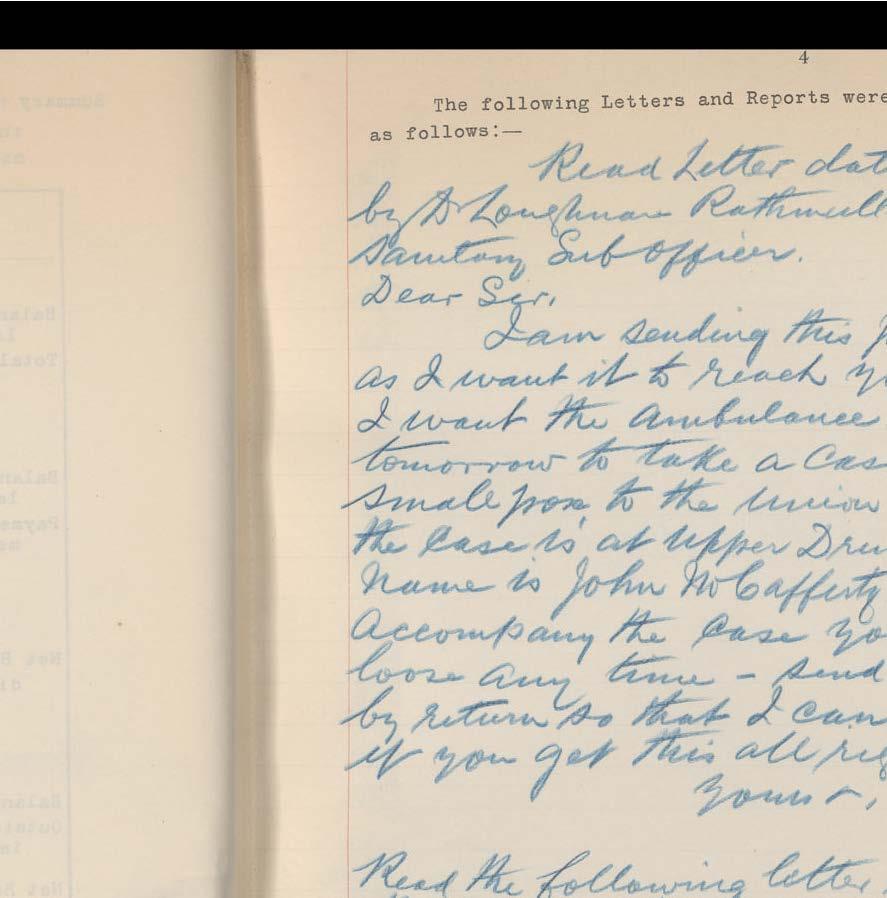 4
The following Letters and Reports were
as follows:—
Read Letter dat
by Dr Loughnan Rathmull
Sanitary Sub Officer.
Dear Sir,
I am sending this
as I want it to reach yo
I want the Ambulance
tomorrow to take a Cas
small pox to the Union
the Case is at Upper Dru
Name is John McCafferty
Accompany the Case yo
loose any time - send
by return so that I can
if you get this all rig
Yours
Read the following letter